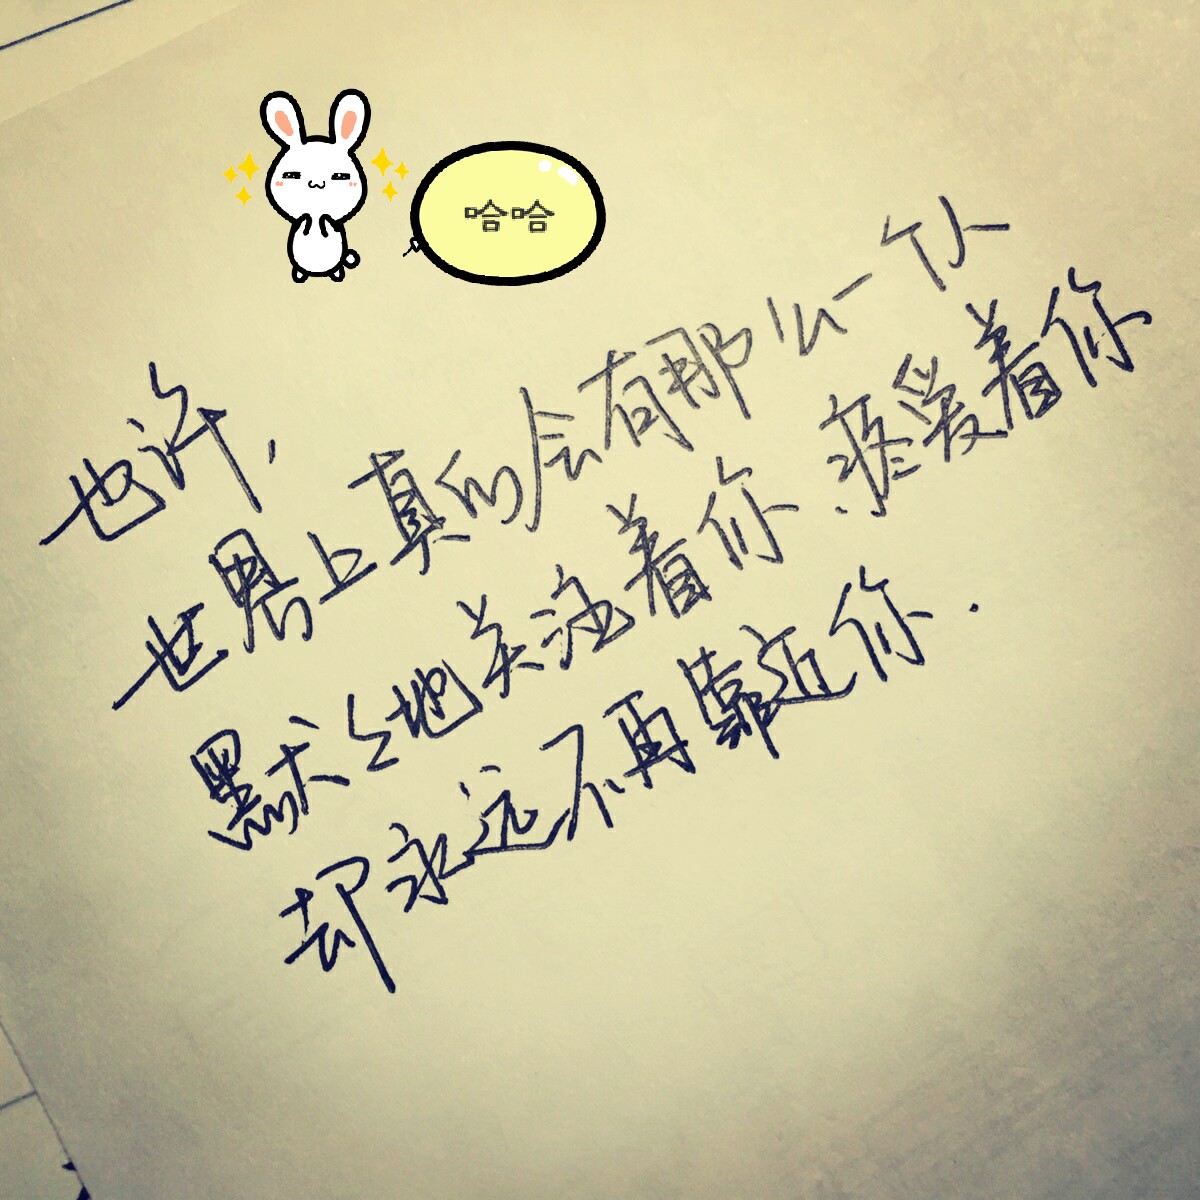 哈哈
也许，
世界上真的会有那么一个人
默默地关注着你.疼爱着你
却永远不再靠近你.